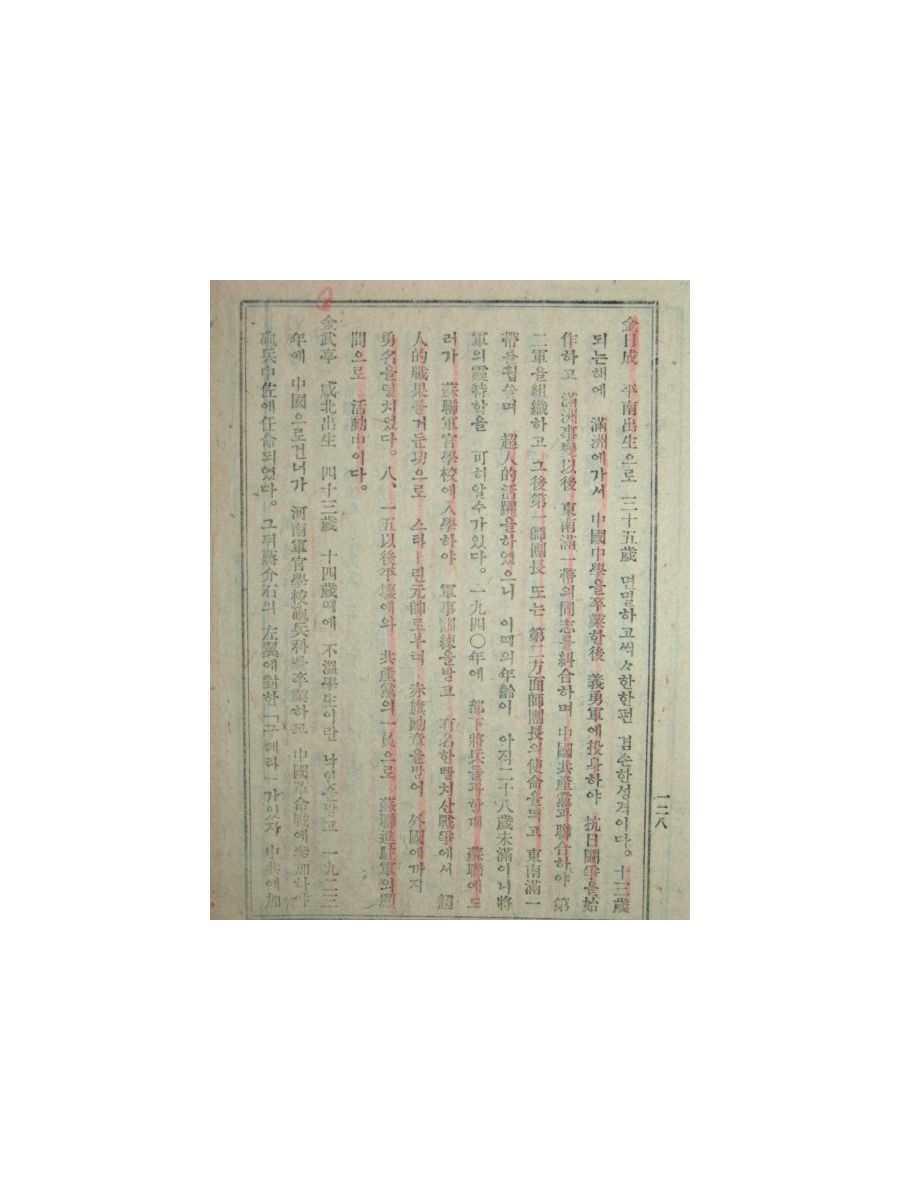 一二八
金日成 平南出生으로 三十五歲 면밀하고씩々한한편 겸손한성격이다。十三歲
되는해에 滿洲에가서 中國中學을卒業한後 義勇軍에投身하야 抗日鬪爭을始
作하고 滿洲事變以後 東南滿一帶의同志를糾合하며 中國共產黨과聯合하야 第
二軍을組織하고 그後第一師團長 또는 第二方面師團長의使命을띄고 東南滿一
帶를휩쓸며 超人的活躍을하였으니 이때의年齡이 아직二十八歲未滿이니將
軍의靈特함을 可히알수가있다。一九四〇年에 部下將兵들과함께 蘇聯에드
러가 蘇聯軍官學校에入學하야 軍事訓練을받고 有名한빨치산戰爭에서 超
人的戰果를거둔功으로 스타ー린元帥로부터 赤旗勳章을받어 外國에까지
勇名을떨치었다。八、一五以後平壤에와 共產黨의一員으로 蘇聯進駐軍의顧
問으로 活動中이다。
金武亭 咸北出生 四十三歲 十四歲때에 不溫學生이란 낙인을받고 一九二三
年에 中國으로건너가 河南軍官學校砲兵科를卒業하고 中國革命戰에參加하야
砲兵中佐에任命되였다。그뒤蔣介石의 左翼에對한「쿠데타ー가있자 中共에加